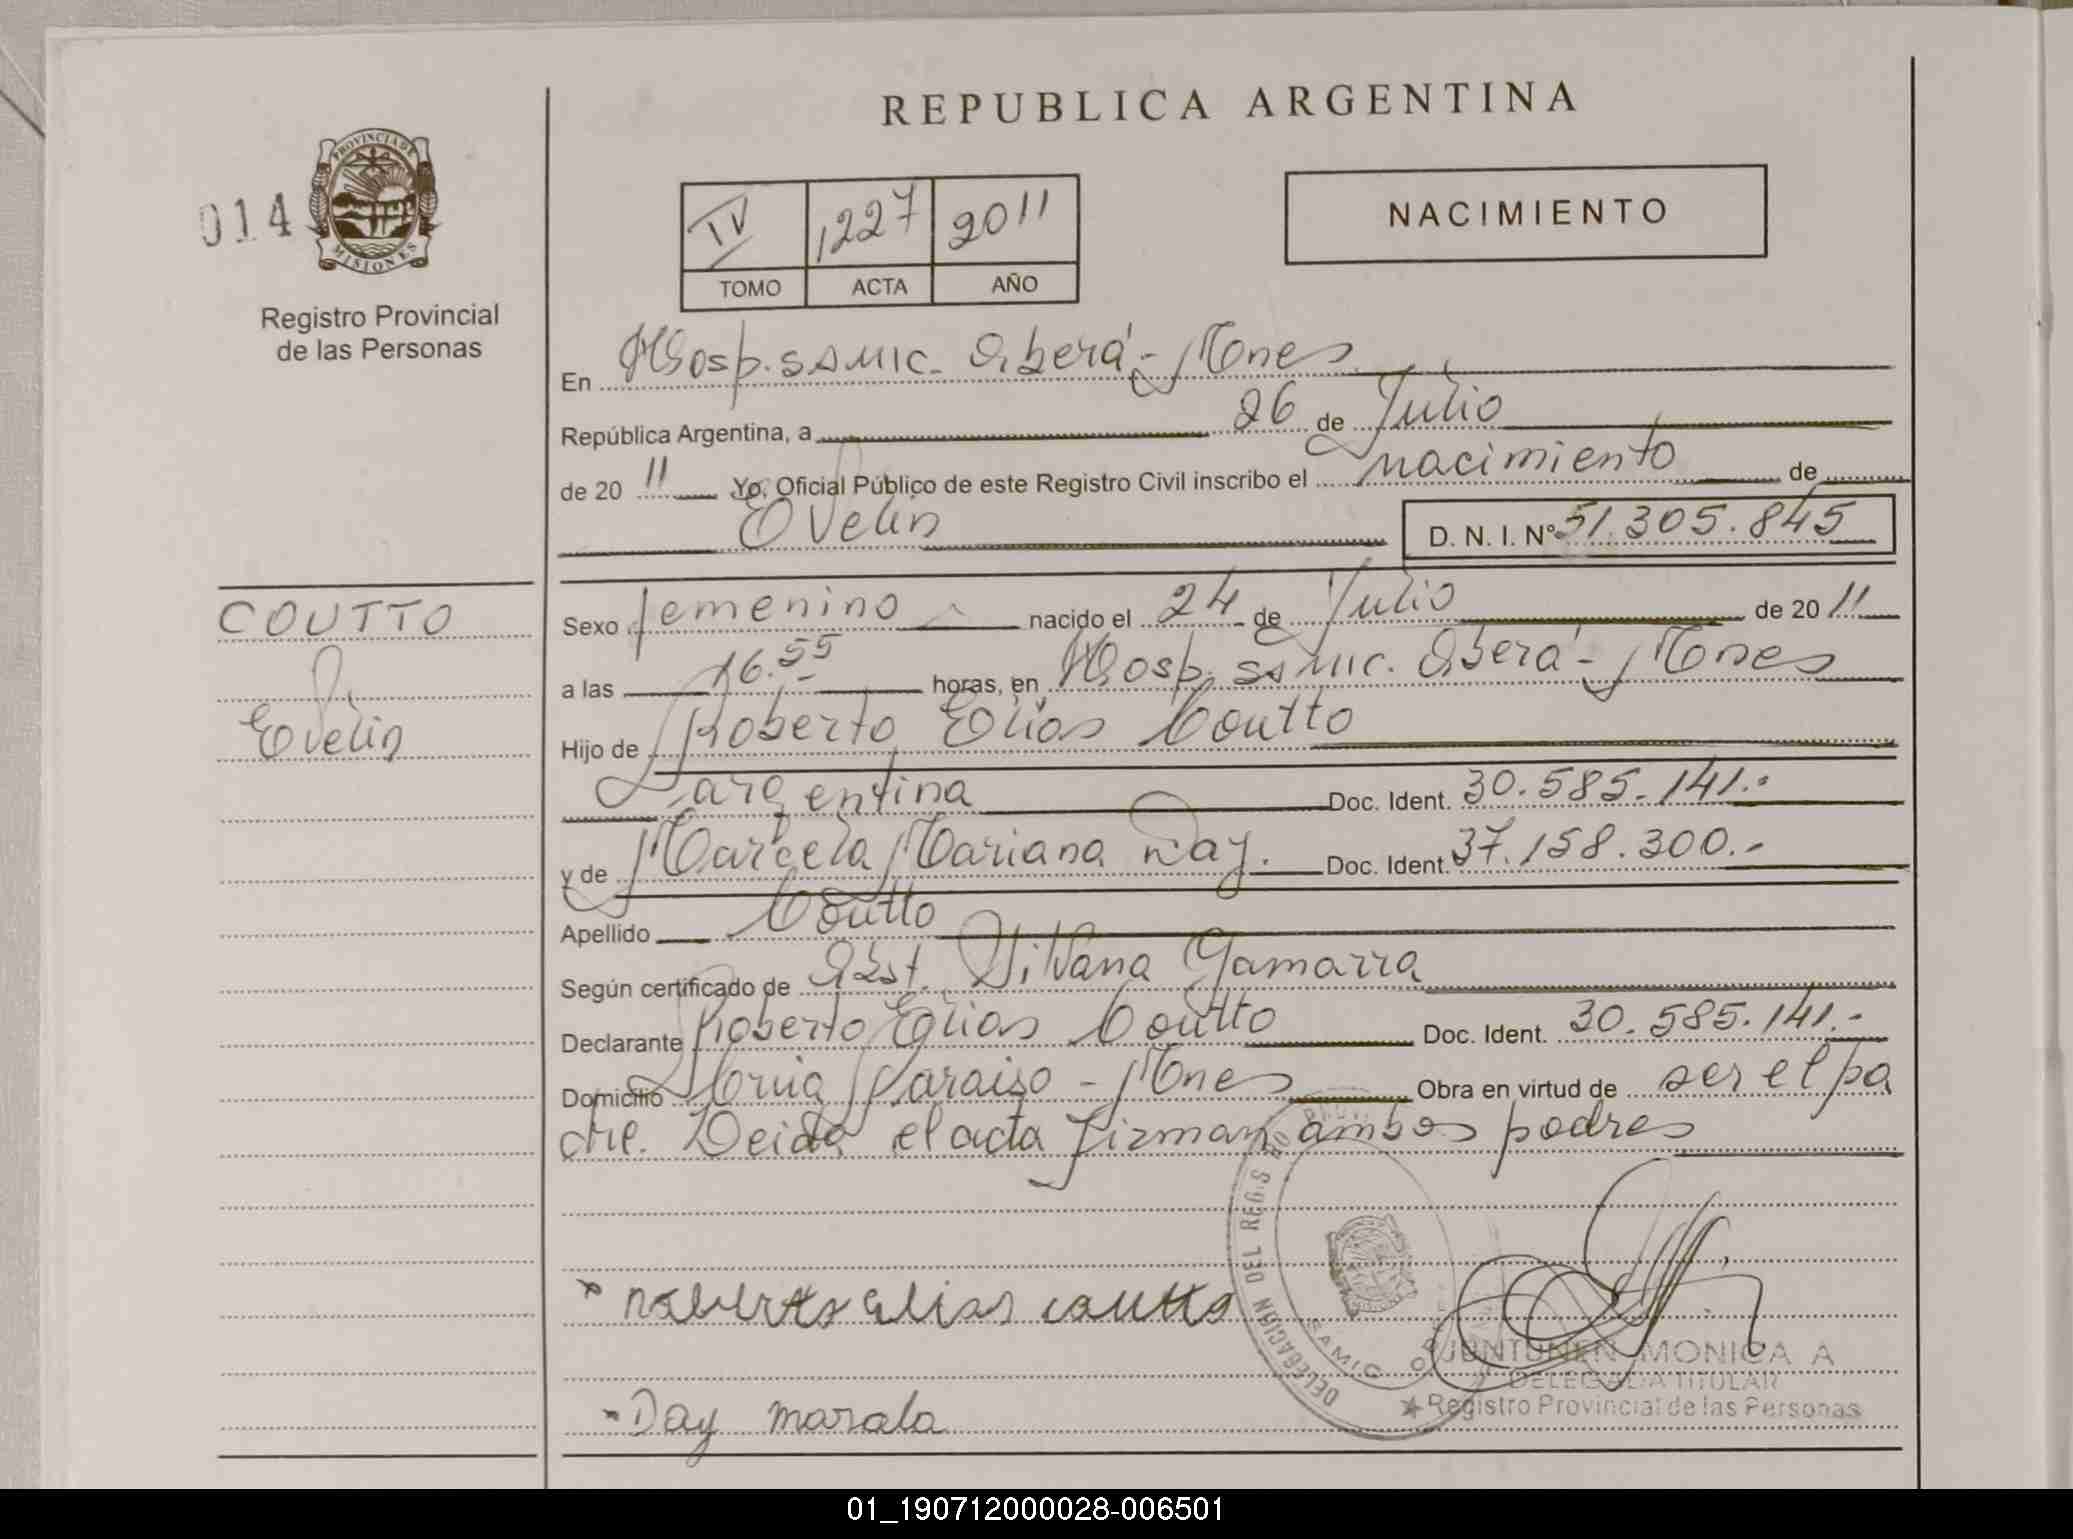 REPUBLICA ARGENTINA
014
PROVINCIA DE
MISIONES
Registro Provincial
de las Personas
IV 1227 2011
TOMO ACTA AÑO
NACIMIENTO
En Hosp. SAMIC. Oberá - Mnes
República Argentina, a 26 de Julio
de 20 11 Yo, Oficial Público de este Registro Civil inscribo el nacimiento de
Evelin D. N. I. Nº 51.305.845
COUTTO
Evelin
Sexo femenino nacido el 24 de Julio de 20 11
a las 16.55 horas, en Hosp. SAMIC. Oberá - Mnes
Hijo de Roberto Elias Coutto
argentina Doc. Ident. 30.585.141.-
y de Marcela Mariana Day. Doc. Ident. 37.158.300.-
Apellido Coutto
Según certificado de Obst. Silvana Gamarra
Declarante Roberto Elias Coutto Doc. Ident. 30.585.141.-
Domicilio Paraiso - Mnes Obra en virtud de ser el pa
dre. Leida el acta firman ambos padres
Roberto Elias Coutto
DELEGACION DEL REGIS
SAMIC
JUNTUNEN MONICA A
DELEGADA TITULAR
Registro Provincial de las Personas
Day
01_190712000028-006501